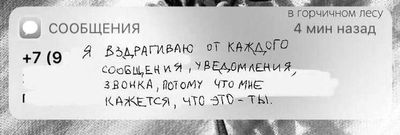 в горчичном лесу
СООБЩЕНИЯ
4 мин назад
+7 (9
Я ВЗДРАГИВАЮ ОТ КАЖДОГО
СООБЩЕНИЯ, УВЕДОМЛЕНИЯ,
ЗВОНКА, ПОТОМУ ЧТО МНЕ
КАЖЕТСЯ, ЧТО ЭТО - ТЫ.